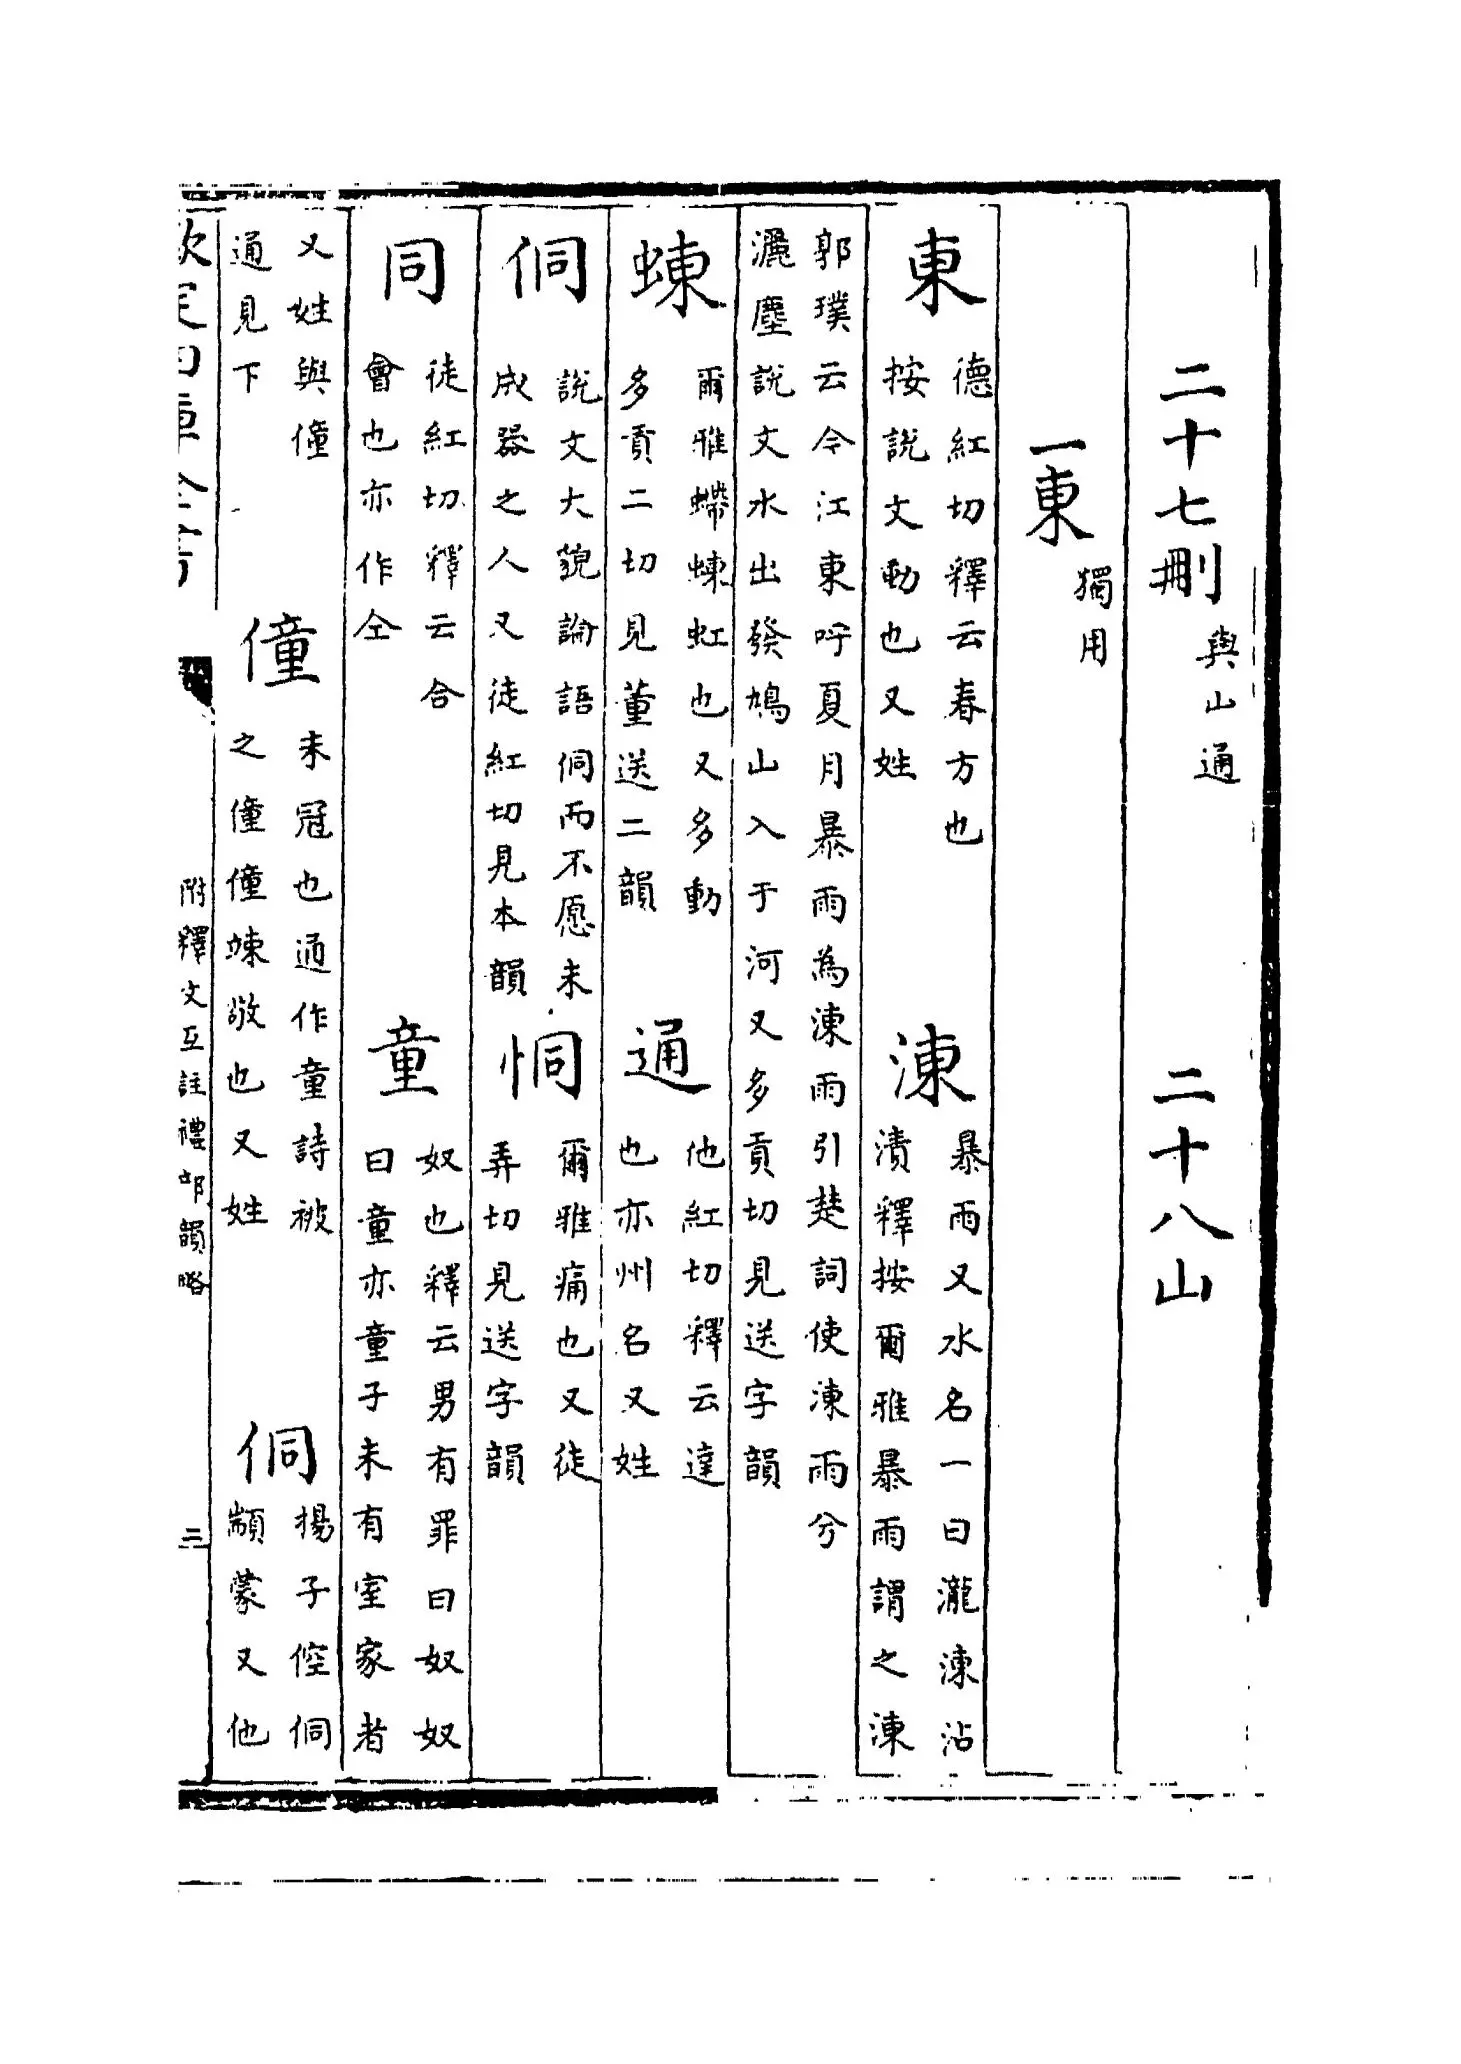 二十七刪 與山通 二十八山
一東 獨用
東 德紅切釋云春方也
按說文動也又姓
涷 暴雨又水名一曰瀧涷沾
漬釋按爾雅暴雨謂之涷
郭璞云今江東呼夏月暴雨為涷雨引楚詞使涷雨兮
灑塵說文水出發鳩山入于河又多貢切見送字韻
蝀 爾雅螮蝀虹也又多動
多貢二切見董送二韻
通 他紅切釋云達
也亦州名又姓
侗 說文大貌論語侗而不愿未
成器之人又徒紅切見本韻
恫 爾雅痛也又徒
弄切見送字韻
同 徒紅切釋云合
會也亦作仝
童 奴也釋云男有罪曰奴奴
曰童亦童子未有室家者
又姓與僮
通見下
僮 未冠也通作童詩被
之僮僮竦敬也又姓
侗 揚子倥侗
顓蒙又他
欽定四庫全書
附釋文互註禮部韻略
二